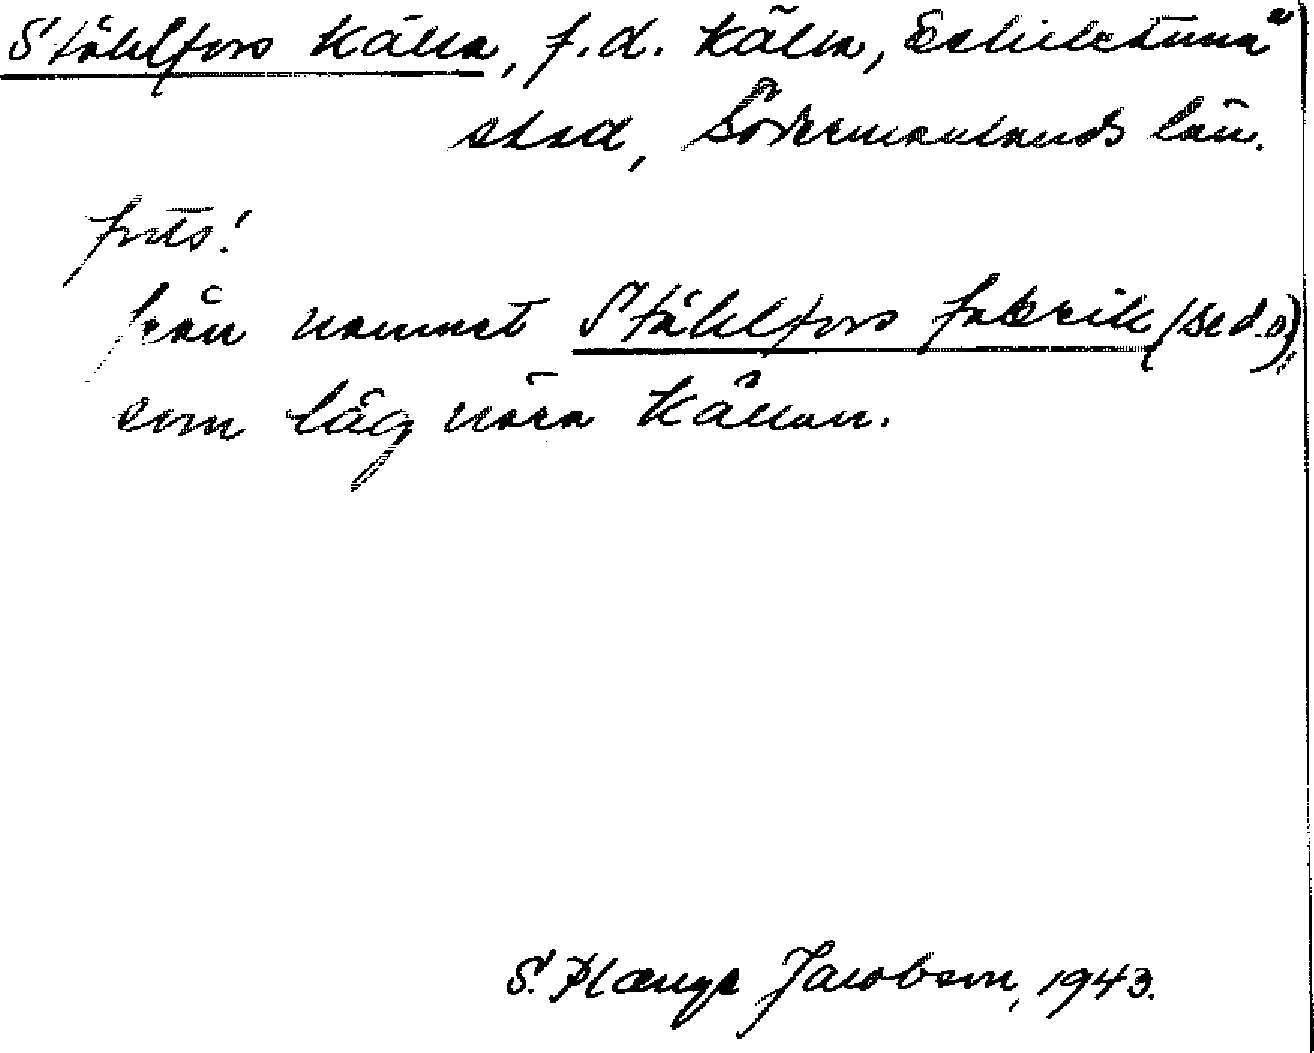 Ståhlfors källa, f.d. källa, Eskilstuna
stad, Södermanlands län.
forts!
från namnet Ståhlfors fabrik (se d.o),
som låg nära källan.
S. Plænge Jacobson, 1943.